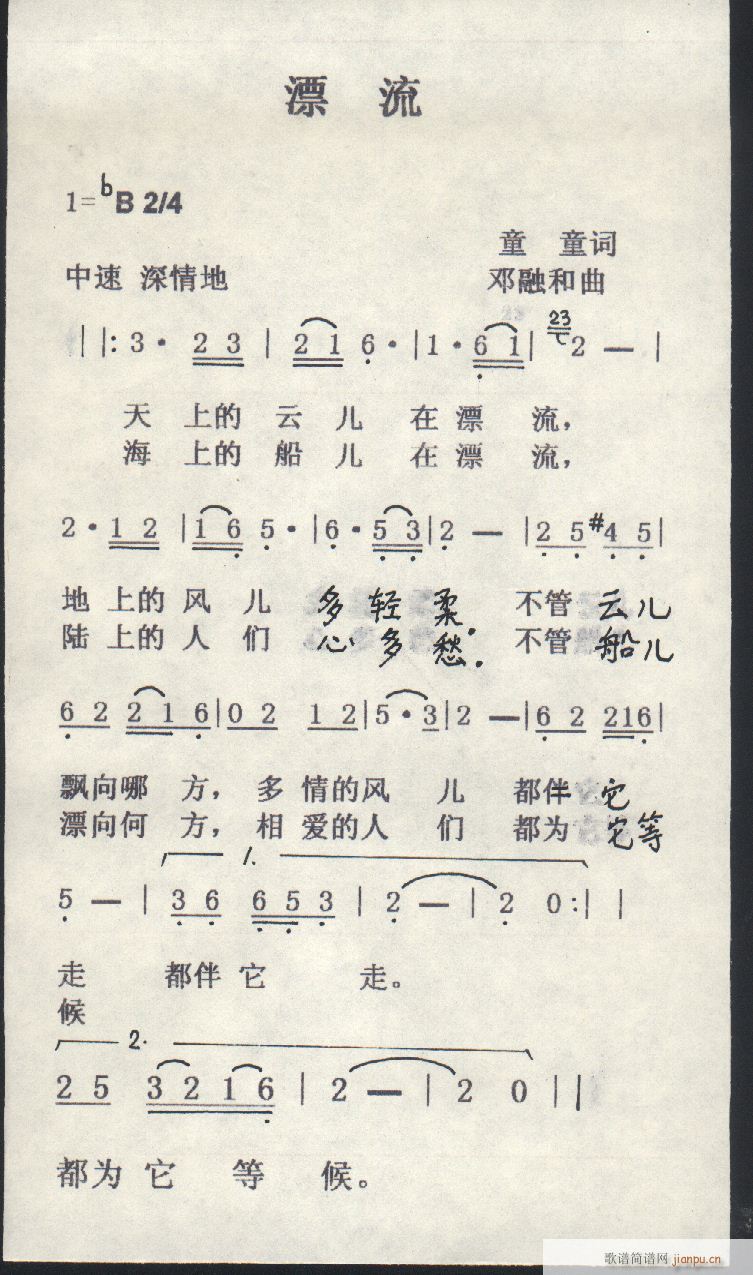 漂 流
1=bB 2/4
童 童词
中速 深情地 邓融和曲
||: 3· 2 3 | 2 1 6· | 1· 6 1 | 23 2 — |
天 上的 云 儿 在 漂 流，
海 上的 船 儿 在 漂 流，
2· 1 2 | 1 6 5· | 6· 5 3 | 2 — | 2 5 #4 5 |
地 上的 风 儿 多 轻 柔， 不管 云儿
陆 上的 人 们 心 多 愁． 不管 船儿
6 2 2 1 6 | 0 2 1 2 | 5· 3 | 2 — | 6 2 216 |
飘向哪 方， 多 情的风 儿 都伴 它
漂向何 方， 相 爱的人 们 都为 它等
1.
5 — | 3 6 6 5 3 | 2 — | 2 0 :| |
走 都伴 它 走。
候
2.
2 5 3 2 1 6 | 2 — | 2 0 ||
都为 它 等 候。
歌谱简谱网 jianpu.cn